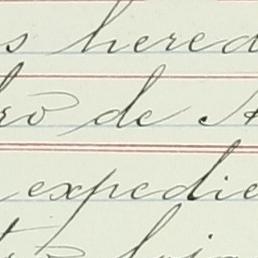 s hered
ro de A
expedie